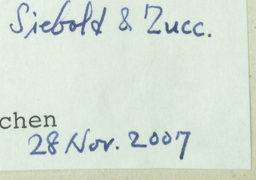 Siebold & Zucc.
chen
28 Nov. 2007